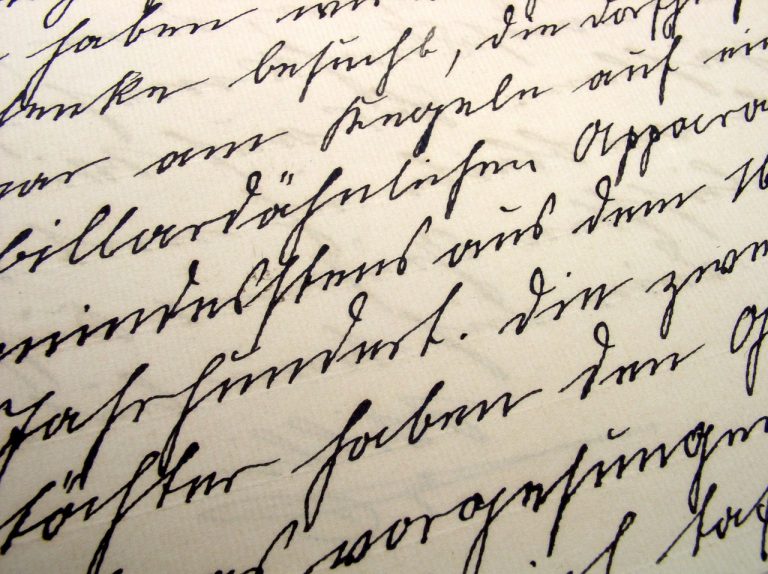 haben wir
besucht, die Dorfsch
war am Kegeln auf ein
billardähnlichen Appara
mindestens aus dem 16
Jahrhundert. Die zwe
töchter haben den G
vorgesungen